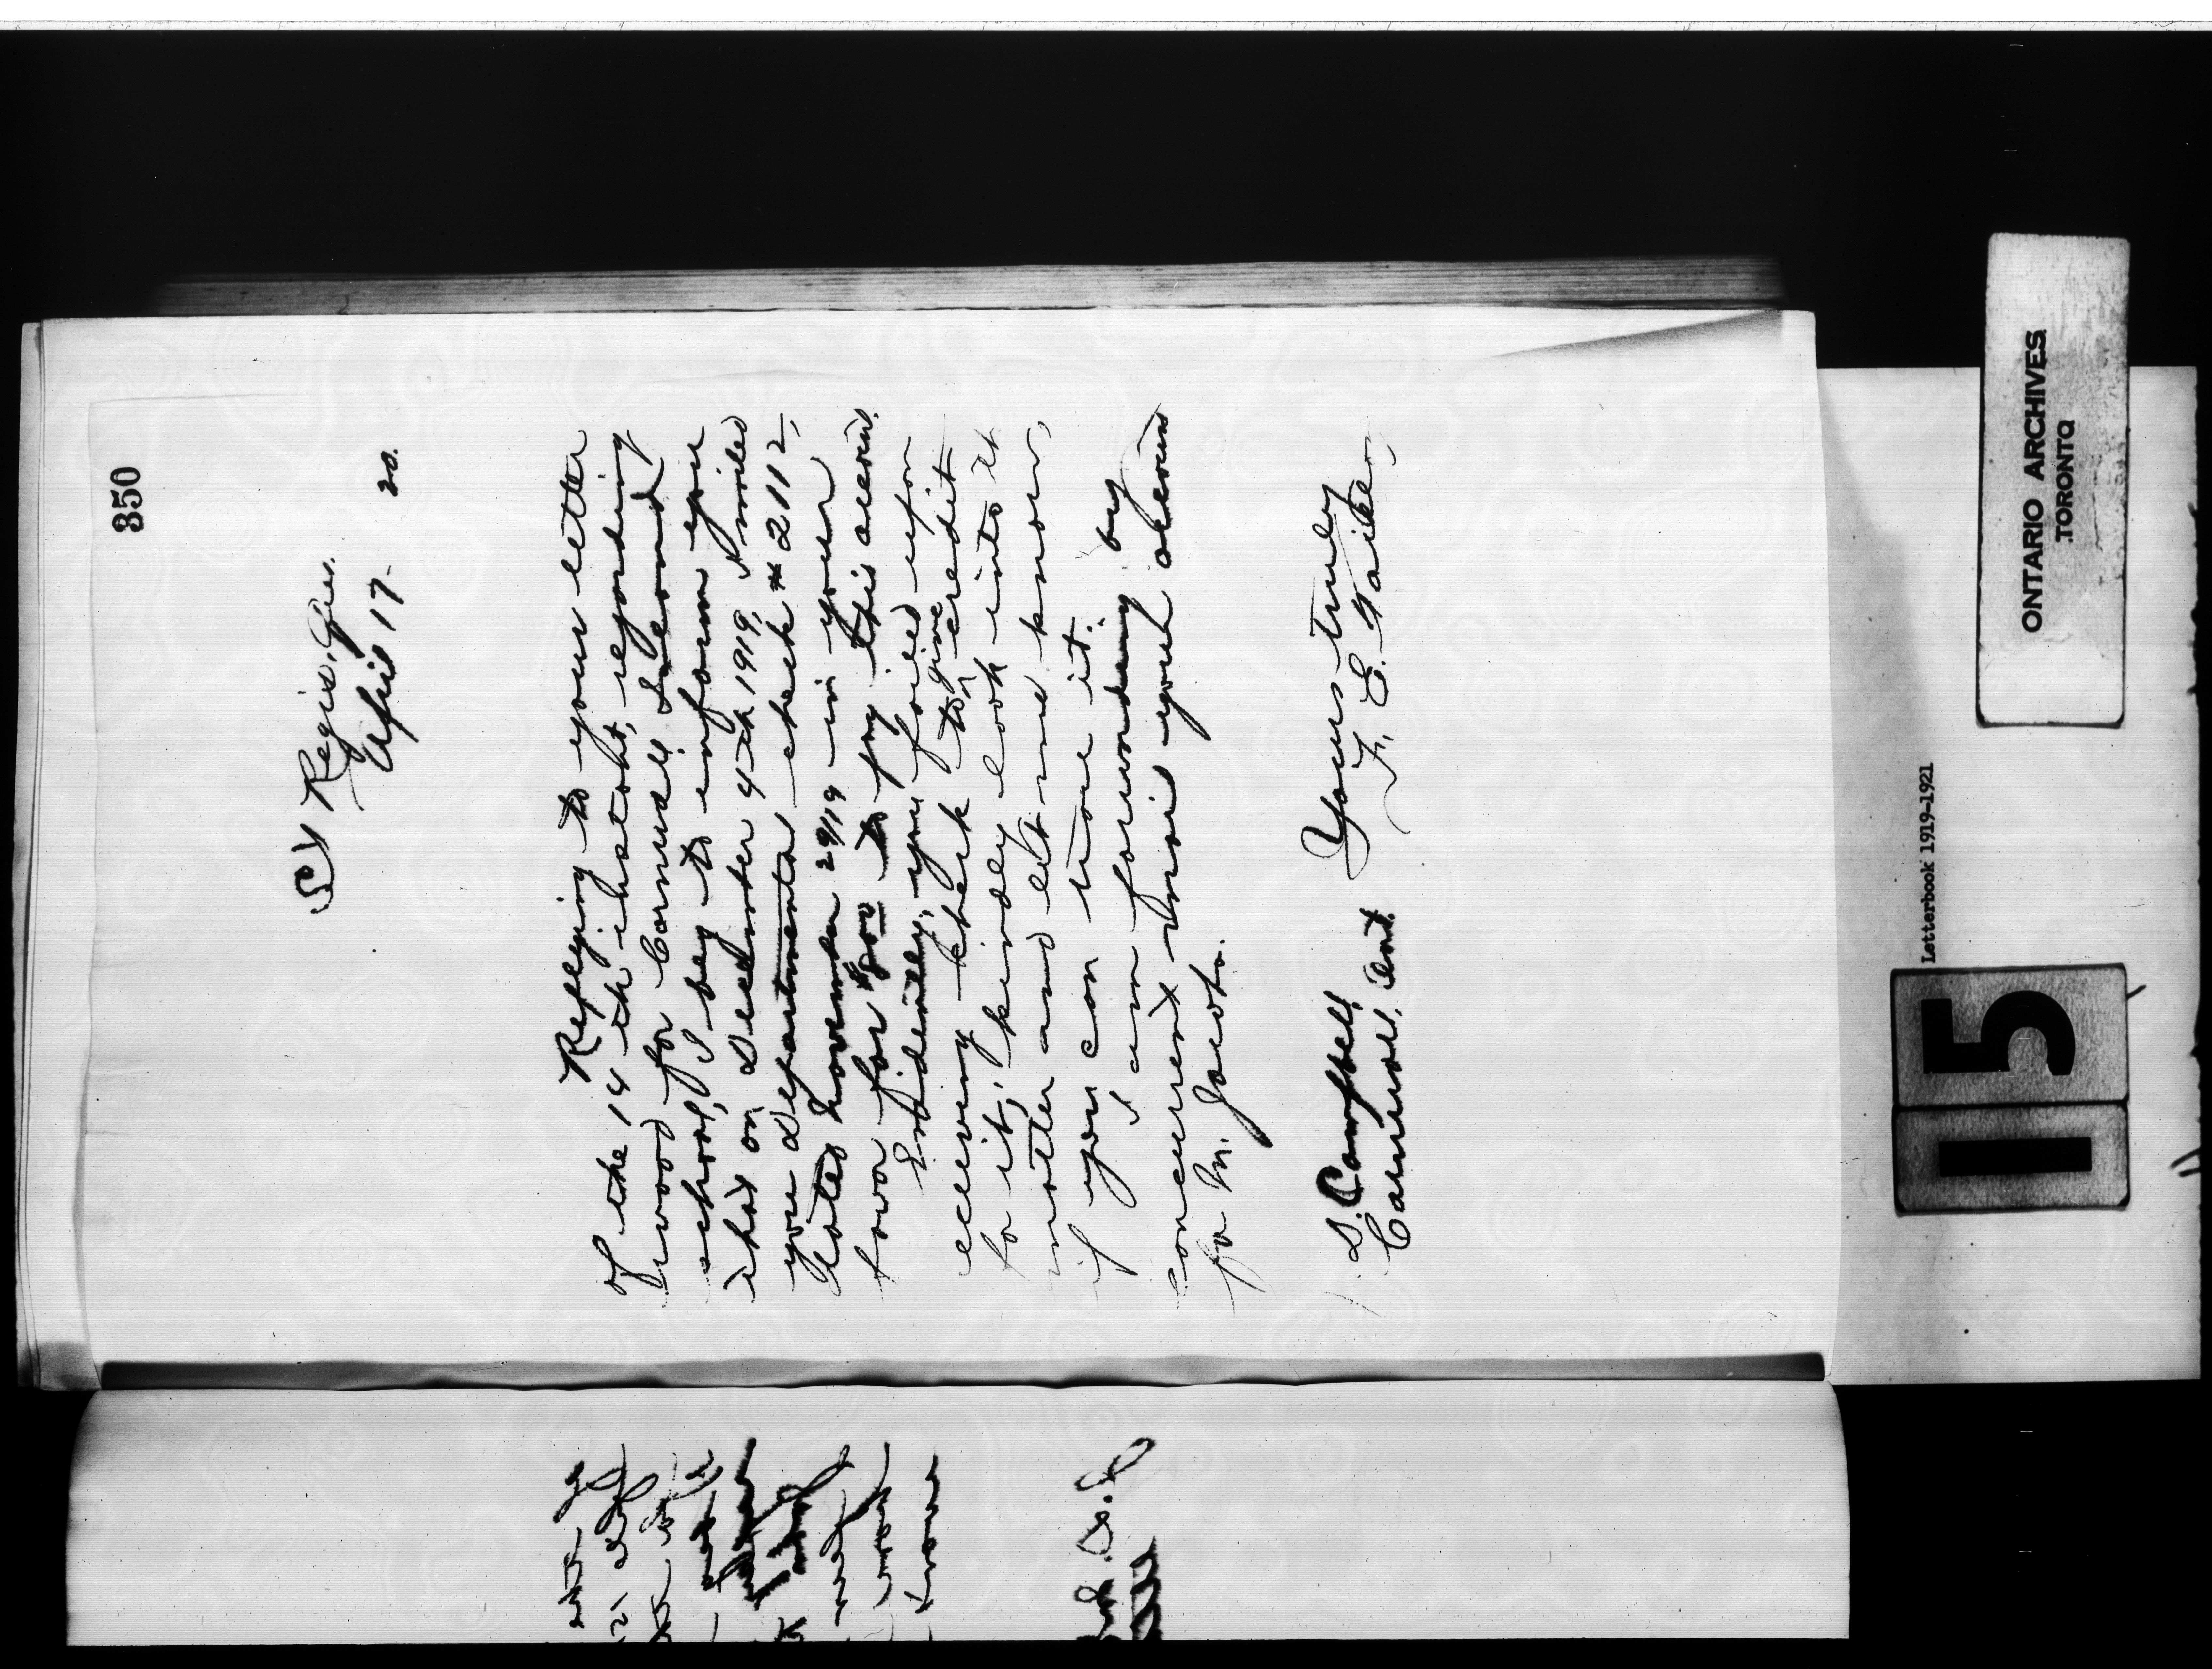 350
St Regis, Que.
April 17- 20.
Replying to your letter
of the 14th instant, regarding
wood for Cornwall Island
school, I beg to inform you
that on December 4th 1919, I mailed
you Departmental check # 2112,
dated November 29/19 in your
favor for $800 to pay this account.
Evidently, you failed upon
receiving check to give credit
for it, kindly look into it
matter and let me know,
if you can trace it.
I am forwarding by
concurrent mail your account
for M. Jacobs.
Yours truly
F. E. Taillon,
D. Campbell,
Cornwall, Ont.
ONTARIO ARCHIVES
TORONTO
Letterbook 1919-1921
15